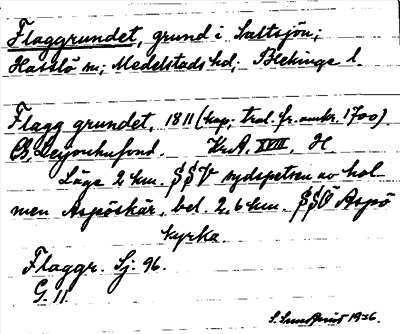 Flaggrundet, grund i Saltsjön,
Hasslö sn; Medelstads hd; Blekinge l.
Flagg grundet, 1811 (kop; trol. fr. omkr. 1700).
B. Leijonhufond. Kr.A. XVIII, H
Läge 2 km. SSV sydspetsen av hol
men Aspöskär, bel. 2,6 km. SSÖ Aspö
kyrka.
Flaggr. Sj. 96.
G. 11.
S. Sundqvist 1936.